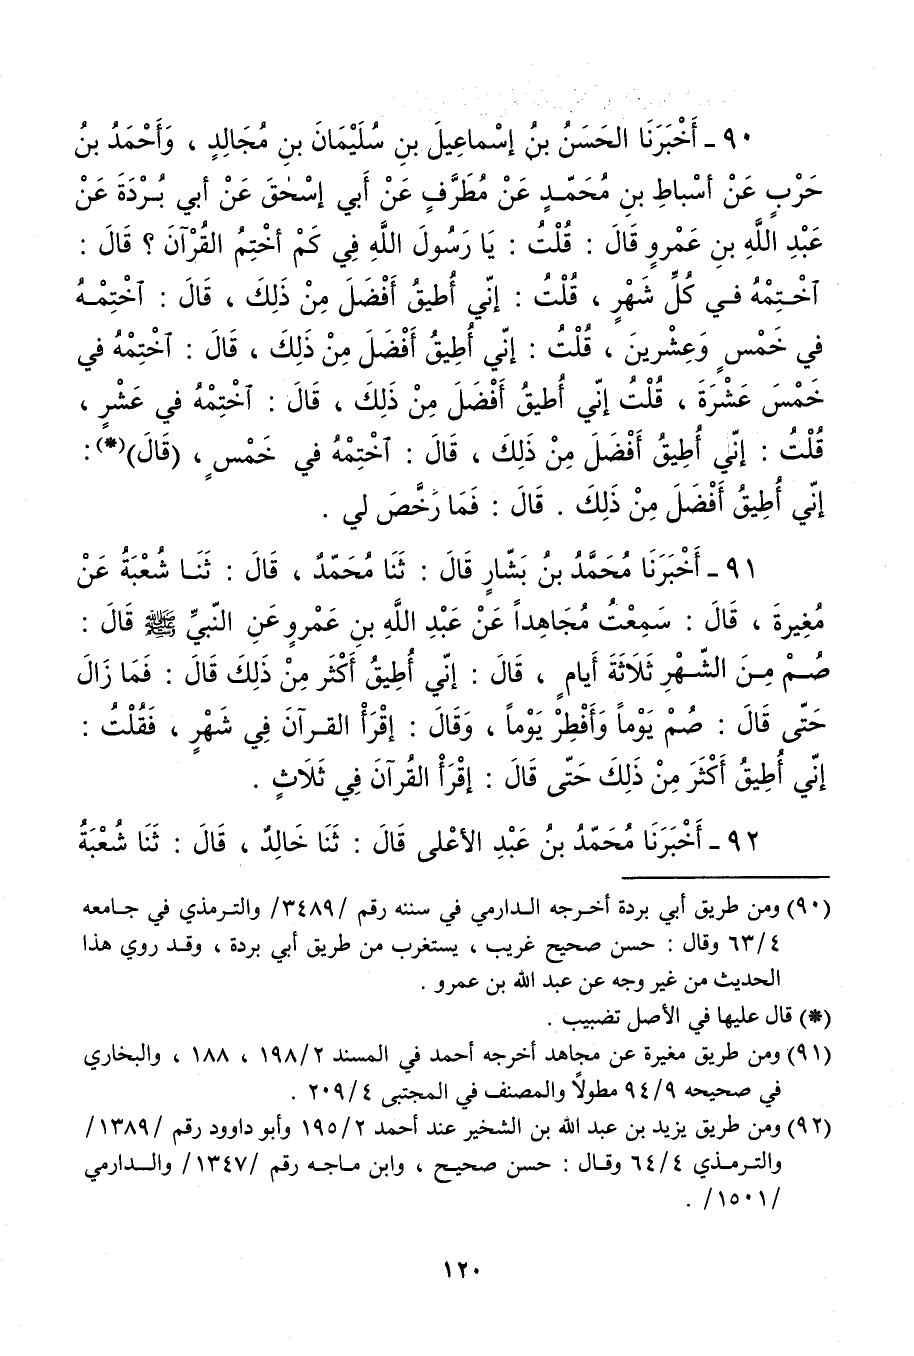 ٩٠ ـ أَخْبَرَنَا الحَسَنُ بنُ إسْماعِيلَ بنِ سُلَيْمَانَ بنِ مُجَالِدٍ ، وَأَحْمَدُ بنُ
حَرْبٍ عَنْ أسْباطِ بنِ مُحَمَّدٍ عَنْ مُطَرَّفٍ عَنْ أَبي إسْحٰقَ عَنْ أبي بُرْدَةَ عَنْ
عَبْدِ اللَّهِ بنِ عَمْرٍو قَالَ : قُلْتُ : يَا رَسُولَ اللَّهِ فِي كَمْ أخْتِمُ القُرْآنَ ؟ قَالَ :
ٱخْتِمْهُ فِي كُلِّ شَهْرٍ ، قُلْتُ : إنّي أُطيقُ أَفْضَلَ مِنْ ذَلِكَ ، قَالَ : ٱخْتِمْهُ
في خَمْسٍ وَعِشْرينَ ، قُلْتُ : إنّي أُطِيقُ أَفْضَلَ مِنْ ذَلِكَ ، قَالَ : ٱخْتِمْهُ في
خَمْسَ عَشْرَةَ ، قُلْتُ إنّي أُطيقُ أَفْضَلَ مِنْ ذَلِكَ ، قَالَ : ٱخْتِمْهُ في عَشْرٍ ،
قُلْتُ : إنّي أُطِيقُ أَفْضَلَ مِنْ ذَلِكَ ، قَالَ : ٱخْتِمْهُ في خَمْسٍ ، (قَالَ)(*) :
إنّي أُطِيقُ أَفْضَلَ مِنْ ذَلِكَ . قَالَ : فَمَا رَخَّصَ لي .
٩١ ـ أَخْبَرَنَا مُحَمَّدُ بنُ بَشّارٍ قَالَ : ثَنَا مُحَمّدٌ ، قَالَ : ثَنَا شُعْبَةُ عَنْ
مُغِيرةَ ، قَالَ : سَمِعْتُ مُجَاهِداً عَنْ عَبْدِ اللَّهِ بنِ عَمْرٍو عَنِ النَّبيِّ ﷺ قَالَ :
صُمْ مِنَ الشّهْرِ ثَلَاثَةَ أَيامٍ ، قَالَ : إنّي أُطِيقُ أَكْثَر مِنْ ذَلِكَ قَالَ : فَمَا زَالَ
حَتّى قَالَ : صُمْ يَوْماً وَأَفْطِرْ يَوْماً ، وَقَالَ : إقْرَأْ القرآنَ فِي شَهْرٍ ، فَقُلْتُ :
إنّي أُطِيقُ أَكْثَرَ مِنْ ذَلِكَ حَتّى قَالَ : إقْرَأْ القُرْآنَ فِي ثَلَاثٍ .
٩٢ ـ أَخْبَرَنَا مُحَمّدُ بنُ عَبْدِ الأعْلى قَالَ : ثَنَا خَالِدٌ ، قَالَ : ثَنَا شُعْبَةُ
(٩٠) ومن طريق أبي بردة أخرجه الدارمي في سننه رقم /٣٤٨٩/ والترمذي في جامعه
٦٣/٤ وقال : حسن صحيح غريب ، يستغرب من طريق أبي بردة ، وقد روي هذا
الحديث من غير وجه عن عبد الله بن عمرو .
(*) قال عليها في الأصل تضبيب .
(٩١) ومن طريق مغيرة عن مجاهد أخرجه أحمد في المسند ١٩٨/٢ ، ١٨٨ ، والبخاري
في صحيحه ٩٤/٩ مطولًا والمصنف في المجتبى ٢٠٩/٤ .
(٩٢) ومن طريق يزيد بن عبد الله بن الشخير عند أحمد ١٩٥/٢ وأبو داوود رقم /١٣٨٩/
والترمذي ٦٤/٤ وقال : حسن صحيح ، وابن ماجه رقم /١٣٤٧/ والدارمي
/١٥٠١/ .
١٢٠